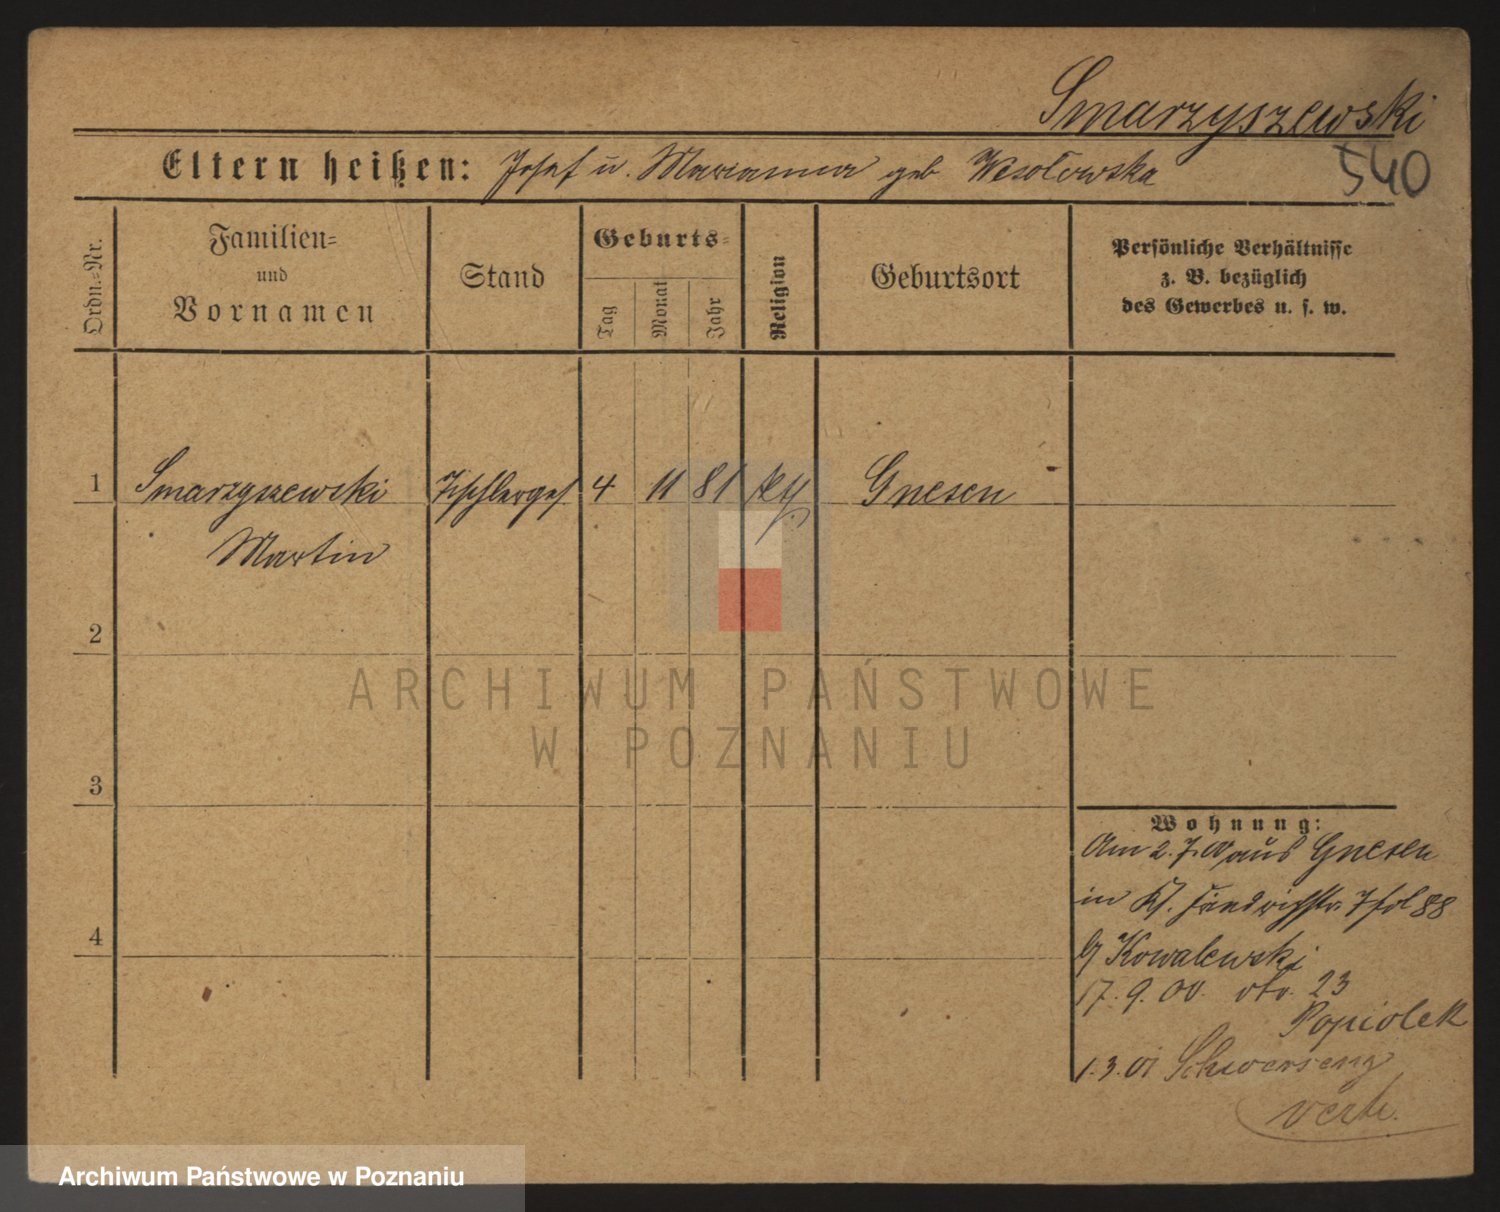 Smarzyszewski
540
Eltern heißen: Josef u. Marianna geb Wesołowska
Ordn.=Nr.
Familien=
und
Vornamen
Stand
Geburts=
Tag
Monat
Jahr
Religion
Geburtsort
Persönliche Verhältnisse
z. B. bezüglich
des Gewerbes u. s. w.
1 Smarzyszewski Tischlerges 4 11 81 Gnesen
Martin
2
3
4
Wohnung:
Am 2.7.00 aus Gnesen
in Kl. 7 fol 88
Kowalewski
17.9.00. 23
Popiolek
1.3.01 Schwersenz
verte.
ARCHIWUM PAŃSTWOWE
W POZNANIU
Archiwum Państwowe w Poznaniu